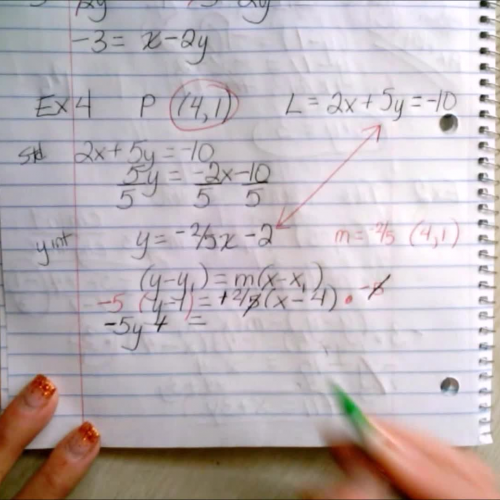 -3 = x - 2y
Ex 4 P (4,1) L = 2x + 5y = -10
std 2x + 5y = -10
5y = -2x - 10
5 5 5
y int y = -2/5x - 2 m = -2/5 (4,1)
(y - y1) = m(x - x1)
-5 (y - 1) = +2/5(x - 4) • -5
-5y 4 =